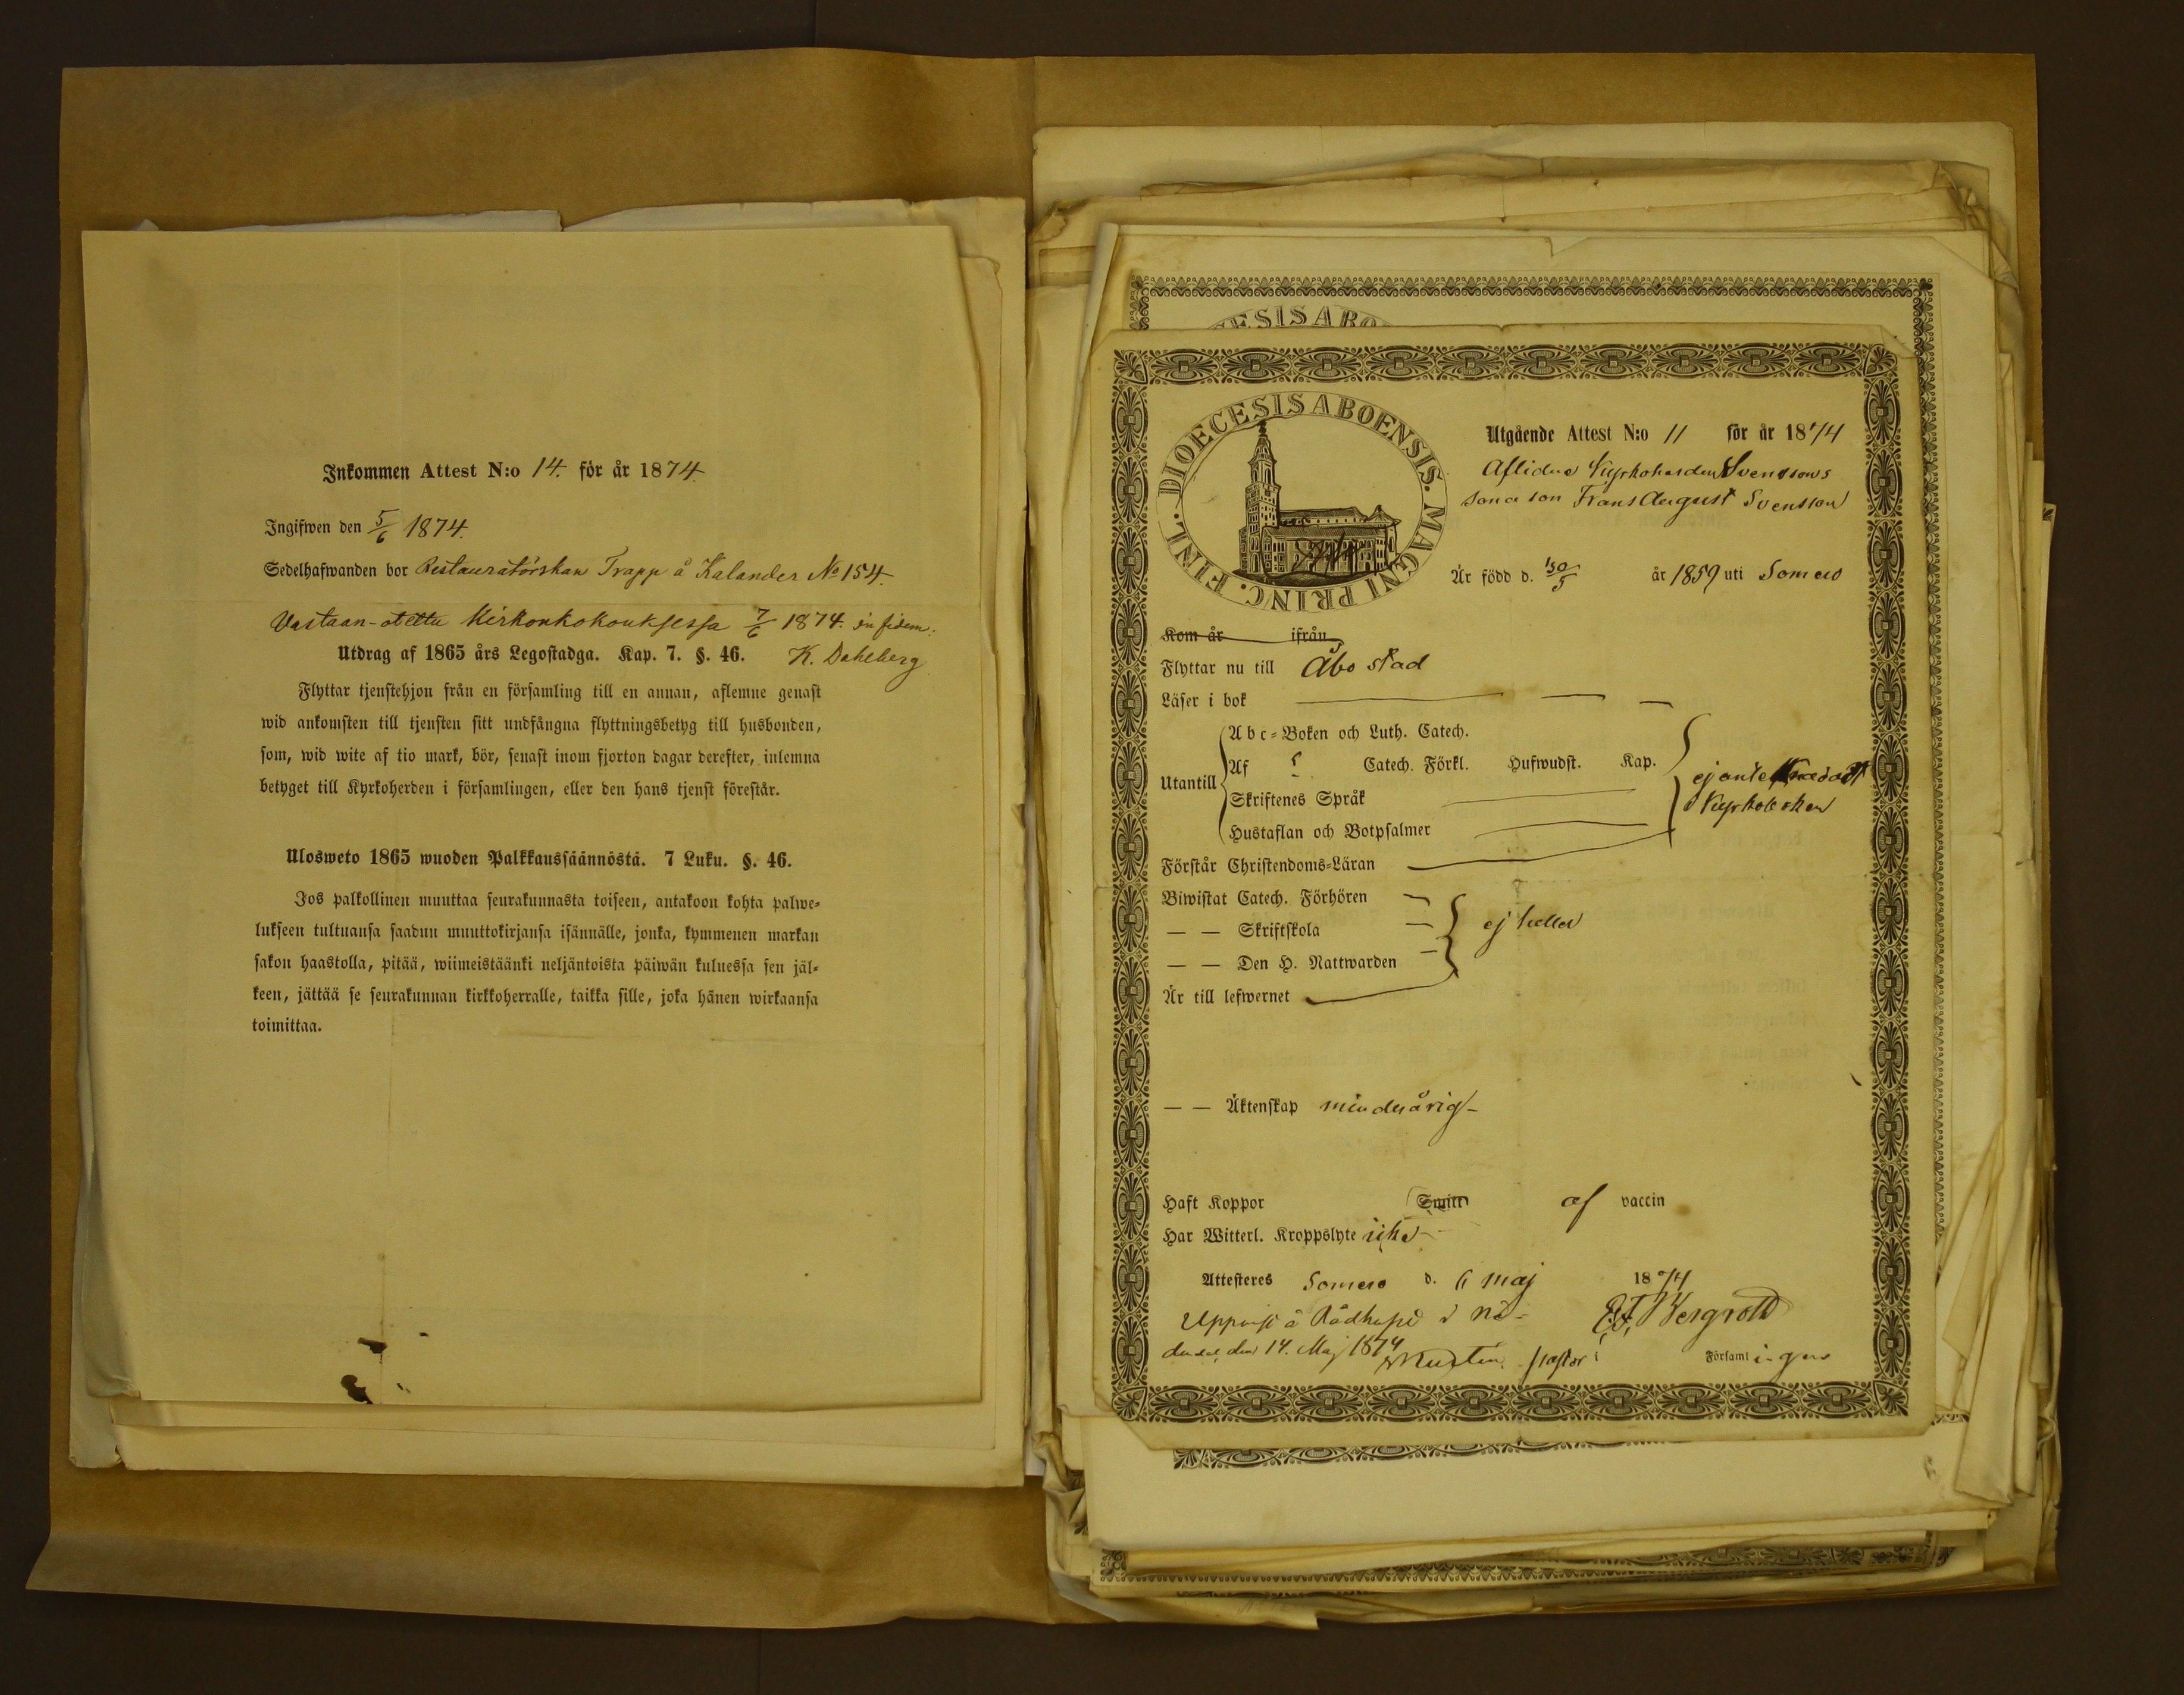 Inkommen Attest N:o 14. för år 1874.
Ingifwen den 5/6 1874.
Sedelhafwanden bor Restauratörskan Trapp å Kalander No 154.
Vastaan-otettu Kirkonkokouksessa 7/6 1874. in fidem:
K. Dahlberg
Utdrag af 1865 års Legostadga. Kap. 7. §. 46.
Flyttar tjenstehjon från en församling till en annan, aflemne genast
wid ankomsten till tjensten sitt undfångna flyttningsbetyg till husbonden,
som, wid wite af tio mark, bör, senast inom fjorton dagar derefter, inlemna
betyget till Kyrkoherden i församlingen, eller den hans tjenst förestår.
Ulosweto 1865 wuoden Palkkaussäännöstä. 7 Luku. §. 46.
Jos palkollinen muuttaa seurakunnasta toiseen, antakoon kohta palwe-
lukseen tultuansa saadun muuttokirjansa isännälle, jonka, kymmenen markan
sakon haastolla, pitää, wiimeistäänki neljäntoista päiwän kuluessa sen jäl-
keen, jättää se seurakunnan kirkkoherralle, taikka sille, joka hänen wirkaansa
toimittaa.
DIOECESIS ABO
FINL. DIOECESIS ABOENSIS. MAGNI PRINC.
Utgående Attest N:o 11 för år 1874
Aflidne Kyrkoherden Svenssons
sona son Frans August Svensson
Är född d. 30/5 år 1859 uti Somero
Kom år ifrån
Flyttar nu till Åbo stad
Läser i bok
Utantill
Abc-Boken och Luth. Catech.
Af Catech. Förkl. Hufwudst. Kap.
Skriftenes Språk
Hustaflan och Botpsalmer
ej
Förstår Christendoms-Läran
Biwistat Catech. Förhören
— — Skriftskola ej heller
— — Den H. Nattwarden
Är till lefwernet
— — Äktenskap minderårig
Haft Koppor Smitt af vaccin
Har Witterl. Kroppslyte icke
Attesteres Somero d. 6 Maj 1874
Uppvist å Rådhuset i Nå-
dendal den 14. Maj 1874
E. F. Bergroth
Pastor i Församlingen